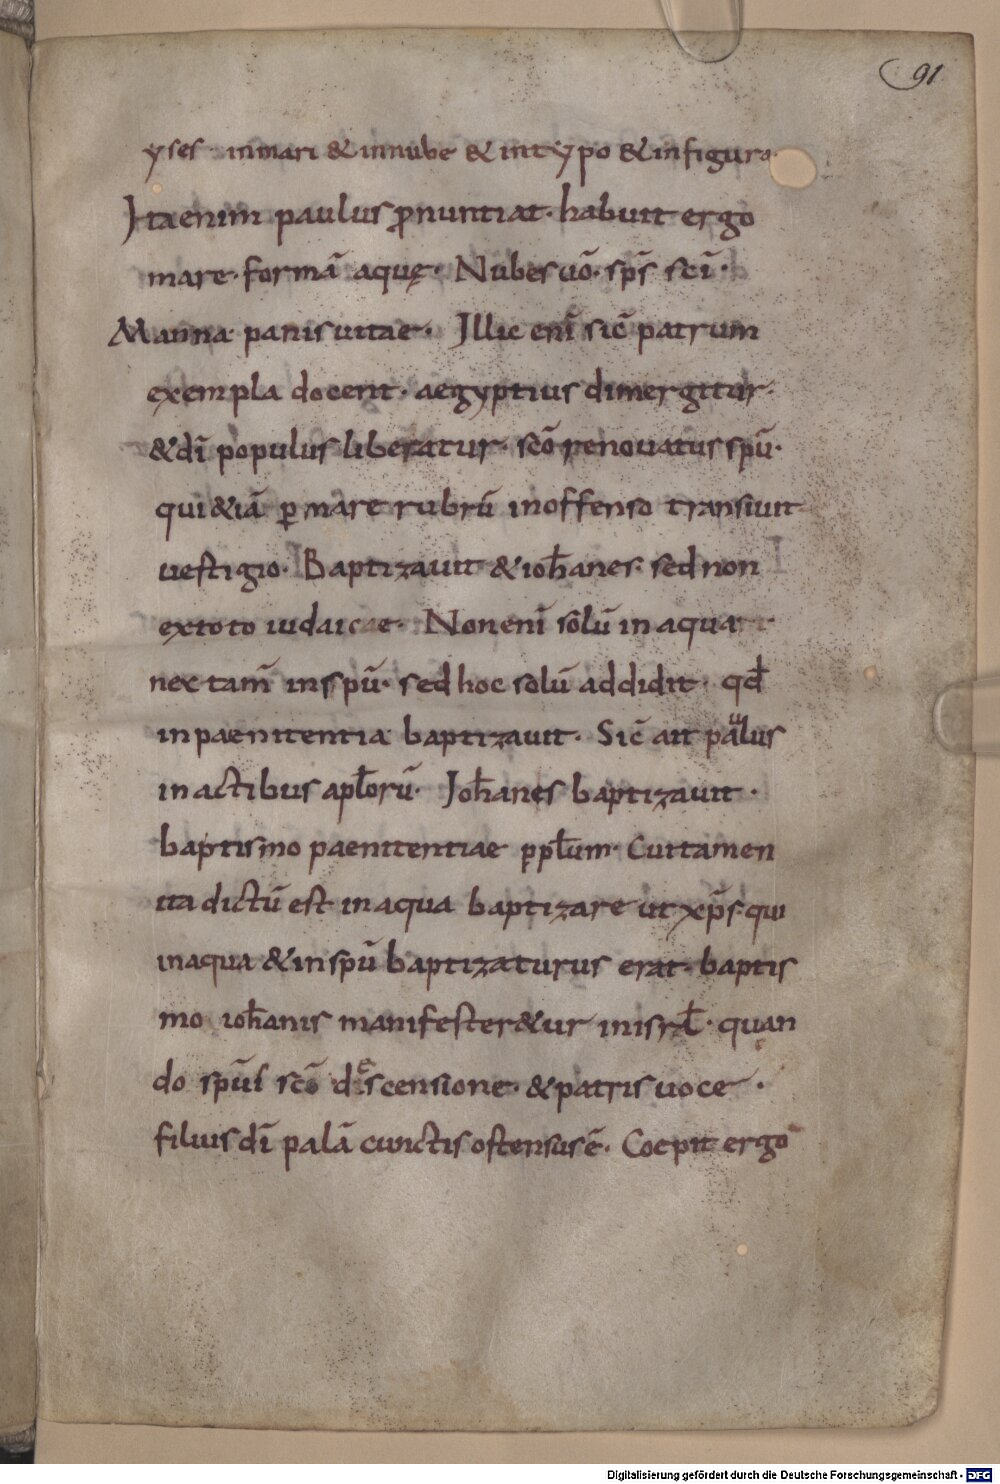 91
yses inmari & innube & intypo & infigura
Ita enim paulus ꝓnuntiat· habuit ergo
mare· formā aquę· Nubes uō· sp̄s sc̄i·
Manna panis uitae· Illic enī sic̄ patrum
exempla docent· aegyptius dimergitur·
& dī populus liberatur· sc̄o renouatus spū·
qui & iā ꝑ mare rubrū inoffenso transiuit
uestigio· Baptizauit & ioh̄anes· sed non
extoto iudaicae· Non enī solū in aqua
nec tam̄ in spū· sed hoc solū addidit· qd̄
in paenitentia baptizauit· Sic̄ ait paulus
in actibus apl̄orū· Ioh̄anes baptizauit·
baptismo paenitentiae ppl̄um· Cui tamen
ita dictū est in aqua baptizare ut xp̄s· qui
in aqua & in spū baptizaturus erat· baptis
mo ioh̄anis manifester&ur in isrl̄· quan
do spūi sc̄o descensione· & patris uoce·
filius dī palā cunctis ostensus ē· Coepit ergo
Digitalisierung gefördert durch die Deutsche Forschungsgemeinschaft - DFG